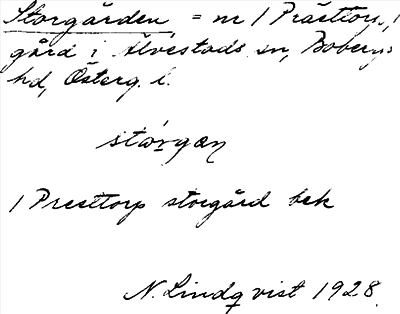 Storgården = nr 1 Prästtorp,
gård i Älvestads sn, Bobergs
hd, Österg. l.
stórgæn
1 Presttorp storgård bek
N. Lindqvist 1928.